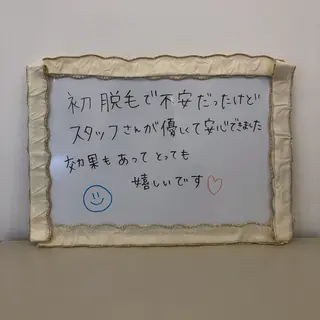 初 脱毛で不安だったけど
スタッフさんが優しくて安心できました
効果もあってとっても
嬉しいです♡